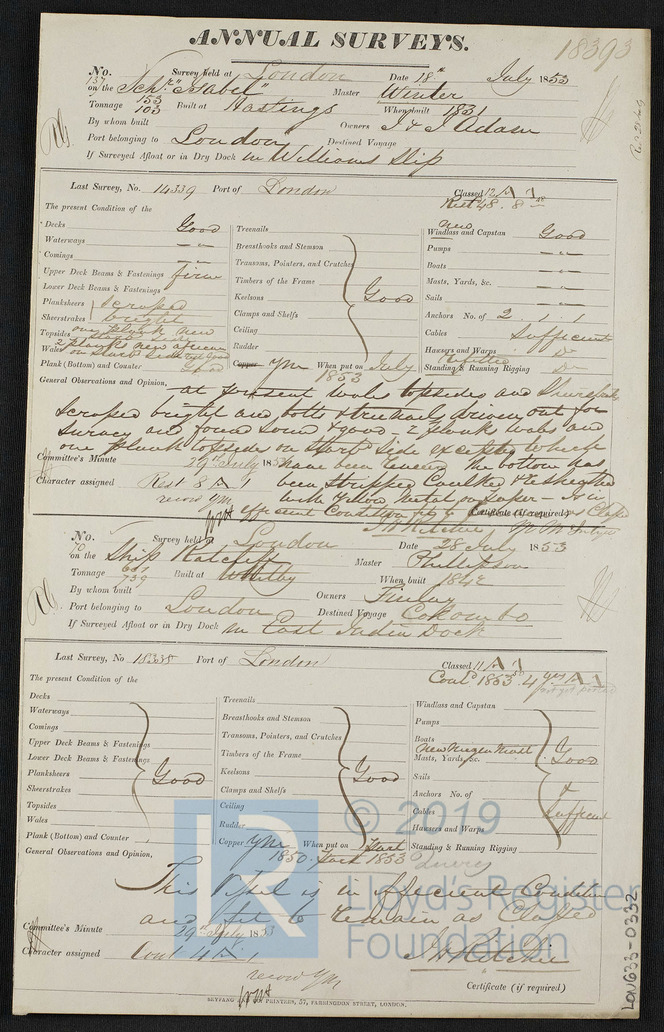 ANNUAL SURVEYS.
18393
No. 137 Survey held at London Date 18th July 1853
on the Schr "Isabel" Master Winter
Tonnage 153 103 Built at Hastings When built 1831
By whom built Owners J & J Adam
Port belonging to London Destined Voyage
If Surveyed Afloat or in Dry Dock in Williams Slip
Last Survey, No. 14339 Port of London Classed 12 A 1
Rest 48. 8
The present Condition of the
Decks Good
Waterways " "
Comings " "
Upper Deck Beams & Fastenings firm
Lower Deck Beams & Fastenings
Planksheers scraped
Sheerstrakes bright
Topsides one plank new
Wales 2 planks new
on Starb side
Plank (Bottom) and Counter Good
Treenails
Breasthooks and Stemson
Transoms, Pointers, and Crutches
Timbers of the Frame
Keelsons Good
Clamps and Shelfs
Ceiling
Rudder
Copper YM When put on July 1853
new
Windlass and Capstan Good
Pumps " "
Boats " "
Masts, Yards, &c. " "
Sails " "
Anchors No. of 2. 1. 1
Cables Sufficient
Hawsers and Warps Do
Standing & Running Rigging Do
General Observations and Opinion, at present wales topsides and Sheerstrakes
scraped bright and bolts & treenails driven out for
survey and found sound & good - 2 planks wales and
one plank topside on Starb side excepted which
have been renewed the bottom has
been stripped Caulked & resheathed
with Yellow Metal on paper - is in
efficient Condition
Committee's Minute 29th July 1853
Character assigned Rest 8 A 1
record YM
Certificate (if required)
No. 70 Survey held at London Date 28 July 1853
on the Ship Ratcliff Master Phillipson
Tonnage 739 Built at Whitby When built 1842
By whom built Owners Finlay
Port belonging to London Destined Voyage Colombo
If Surveyed Afloat or in Dry Dock in East India Dock
Last Survey, No 18338 Port of London Classed 11 A 1
Cont 1853. 4 yrs A 1
The present Condition of the
Decks
Waterways
Comings
Upper Deck Beams & Fastenings
Lower Deck Beams & Fastenings
Planksheers Good
Sheerstrakes
Topsides
Wales
Plank (Bottom) and Counter
Treenails
Breasthooks and Stemson
Transoms, Pointers, and Crutches
Timbers of the Frame
Keelsons Good
Clamps and Shelfs
Ceiling
Rudder
Copper YM When put on part
1850. part 1853
Windlass and Capstan
Pumps
Boats
New Mizen Mast
Masts, Yards, &c. Good
Sails
Anchors No. of &
Cables Sufficient
Hawsers and Warps
Standing & Running Rigging
General Observations and Opinion,
This Vessel is in efficient Condition
and fit to remain as Classed
Committee's Minute 29th July 1853
Character assigned Cont 4 A 1
record YM
Certificate (if required)
SEYFANG PRINTERS, 57, FARRINGDON STREET, LONDON.
© 2019
Lloyd's Register
Foundation
LON633-0332